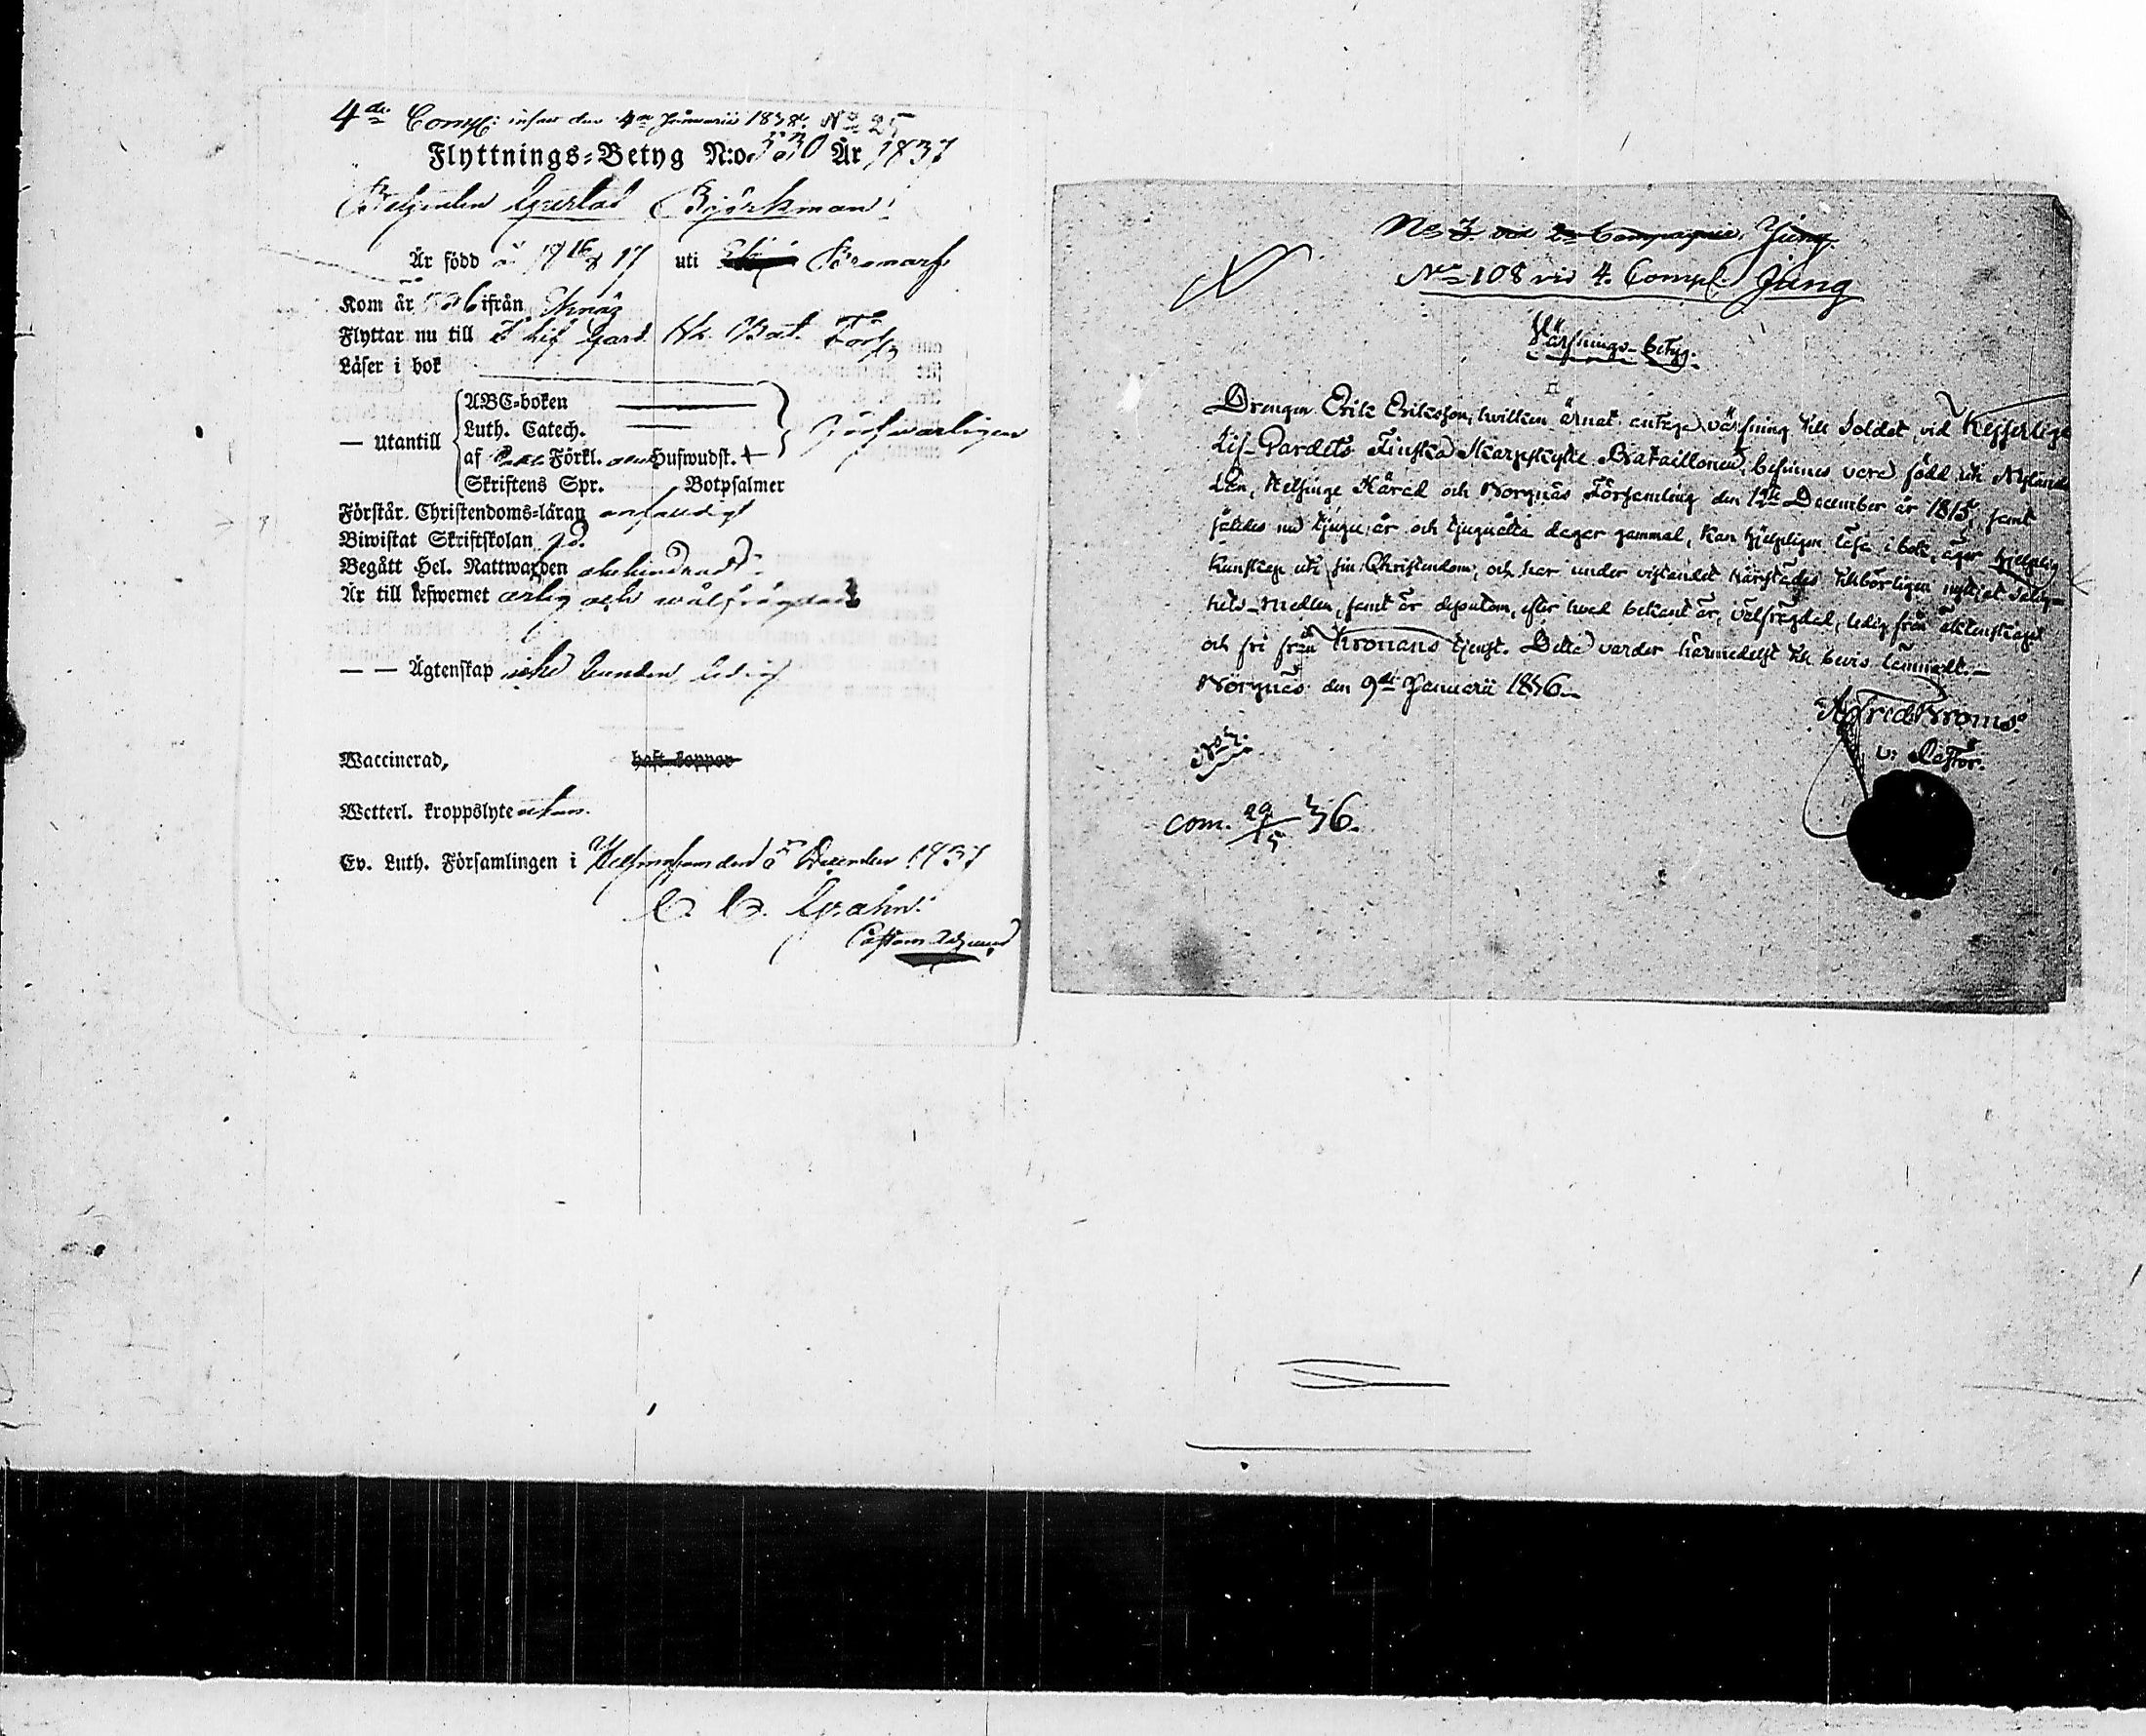 4de Comp: infördt den 4de Januarii 1838. No 25
Flyttnings-Betyg N:o 530 År 1837
Gustaf Björkman
Är född år 18 16/8 17 uti Bromarf
Kom år ifrån Ekenäs
Flyttar nu till Lif Gard. Förs.
Läser i bok
— utantill
ABC-boken
Luth. Catech.
af Förkl. Hufwudst.
Skriftens Spr. Botpsalmer
Förswarligen
Förstår Christendoms-läran enfaldigt
Biwistat Skriftskolan
Begått Hel. Nattwarden obehindrad
Är till lefwernet ärlig och wälfrägdad
— — Ägtenskap icke bunden ledig
Waccinerad, haft koppor
Wetterl. kroppslyte utan
Ev. Luth. Församlingen i Helsingfors den 5 December 1837
C. G. Grahn
Pastors Adjunct
No 3 vid 2a Compagnie, Ljung
No 108 vid 4. Comp. Ljung
Värfnings-betyg.
Drengen Erik Eriksson, hvilken ärnat antaga värfning till Soldat vid Kejserliga
Lif-Gardets Finska Skarpskytte Bataillonen, befinnes vara född uti Nylands
Län, Helsinge Härad och Sjundeå Församling den 12te December år 1815, samt
således nu tjugu år och tjuguåtta dagar gammal, kan hjelpligen läsa i bok, äger hjelplig
kunskap uti sin Christendom, och har under vistandet härstädes tillbörligen nyttjat Salig-
hets-medlen, samt är dessutom, efter hvad bekant är, välfrägdad, ledig från äktenskapet
och fri från Kronans tjenst. Detta varder härmedelst till bevis lemnadt.—
den 9de Januarii 1836.—
Alfred Broms.
v. Pastor.
com. 29/5 36.